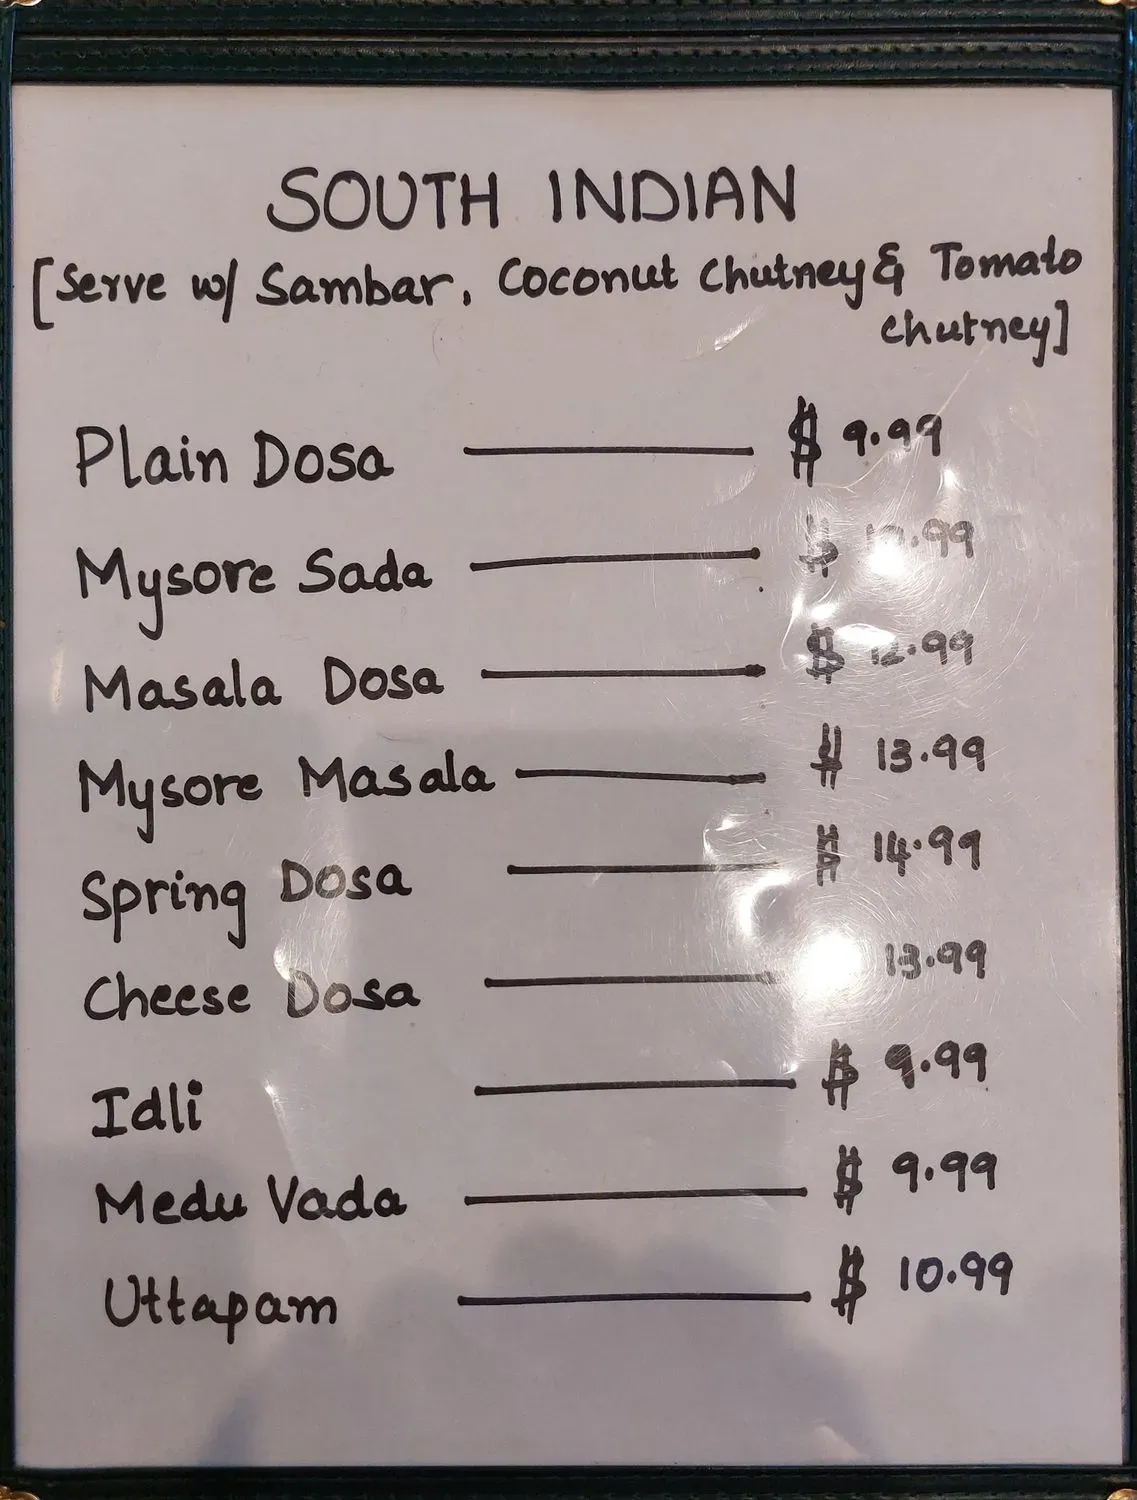 SOUTH INDIAN
[Serve w/ Sambar, Coconut Chutney & Tomato
chutney]
Plain Dosa $ 9.99
Mysore Sada $
Masala Dosa $ 12.99
Mysore Masala $ 13.99
Spring Dosa $ 14.99
Cheese Dosa 13.99
Idli $ 9.99
Medu Vada $ 9.99
Uttapam $ 10.99